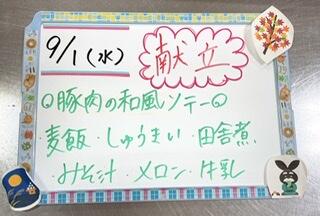 9/1(水) 献立
○豚肉の和風ソテー○
麦飯・しゅうまい・田舎煮
・みそ汁・メロン・牛乳